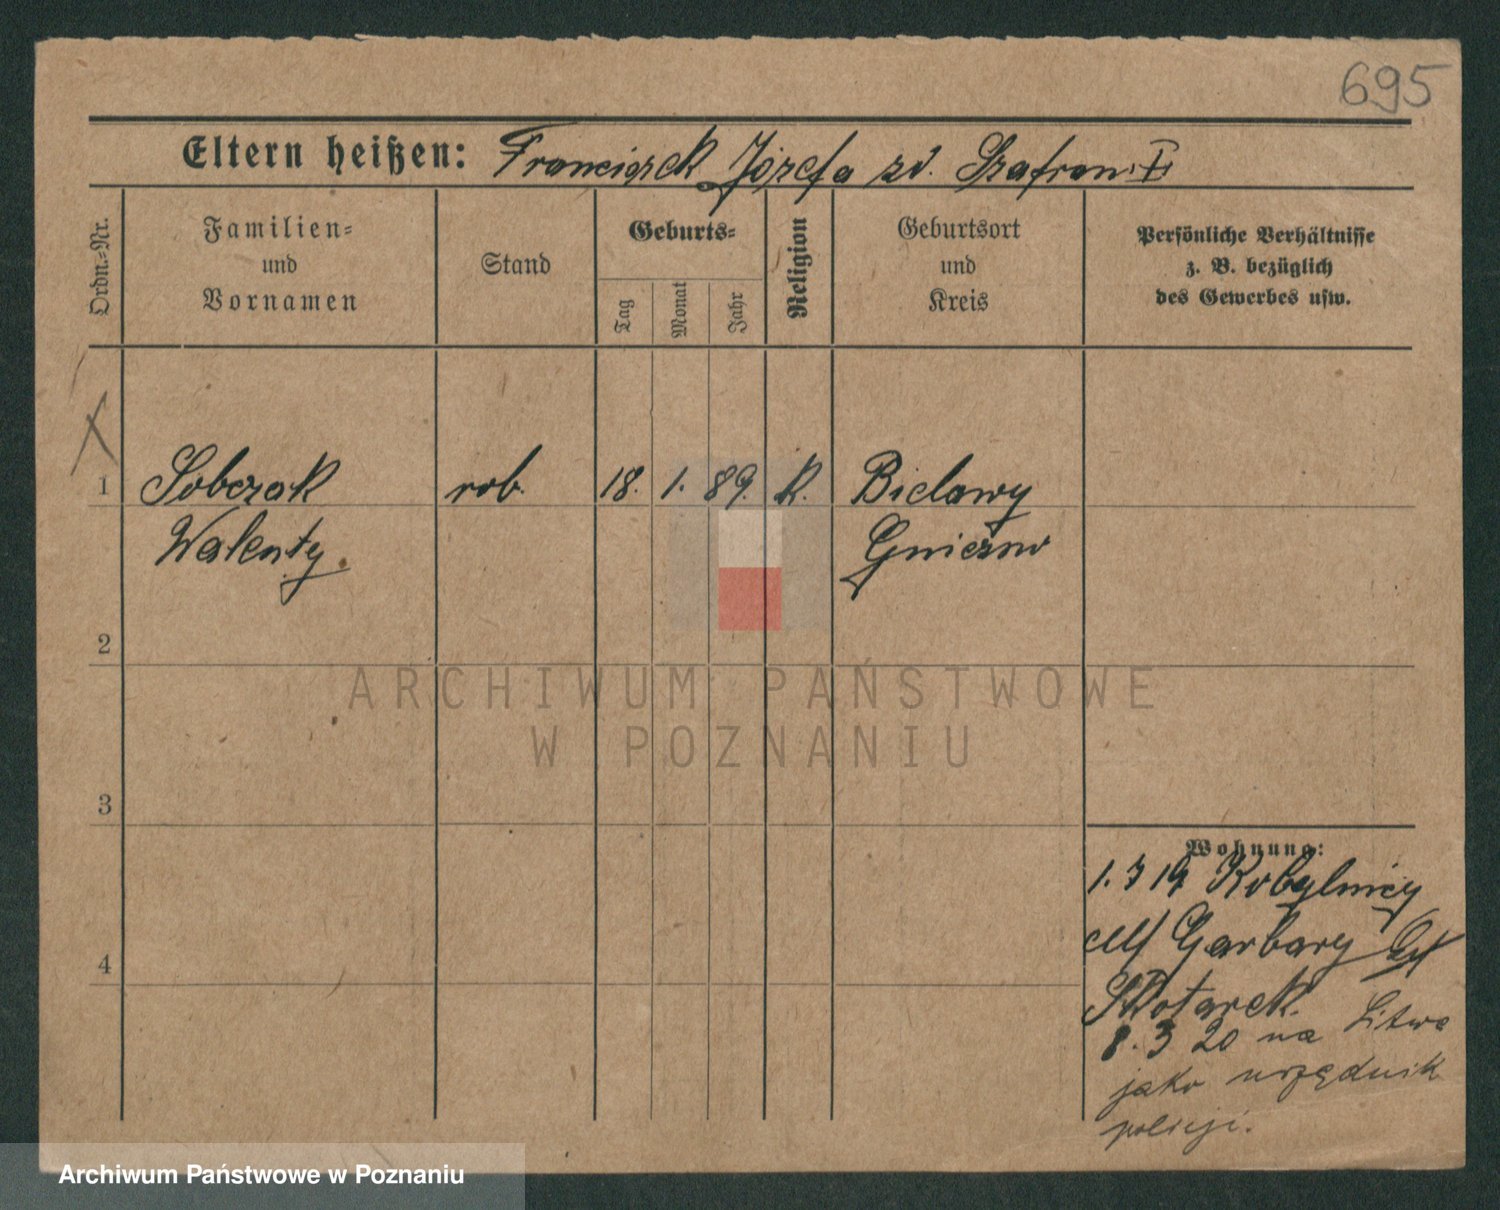 695
Eltern heißen: Franciszek Józefa zd. Szafran.
Ordn.-Nr.
Familien-
und
Vornamen
Stand
Geburts-
Tag
Monat
Jahr
Religion
Geburtsort
und
Kreis
Persönliche Verhältnisse
z. B. bezüglich
des Gewerbes usw.
1 Sobczak rob. 18. 1. 89. K. Bielawy
Walenty Gniezno
2
3
4
Wohnung:
1. 3 19 Kobylnicy
Garbary
8. 3 20 na Litwe
jako urzędnik
policji.
ARCHIWUM PAŃSTWOWE
W POZNANIU
Archiwum Państwowe w Poznaniu